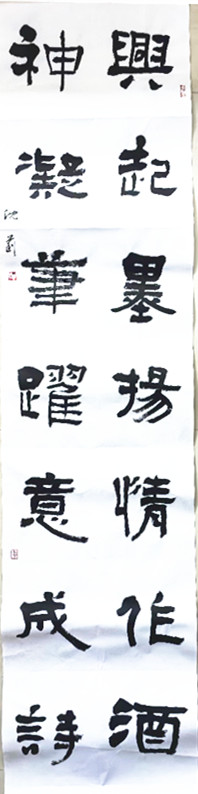 興起墨揚情作酒
神凝筆躍意成詩